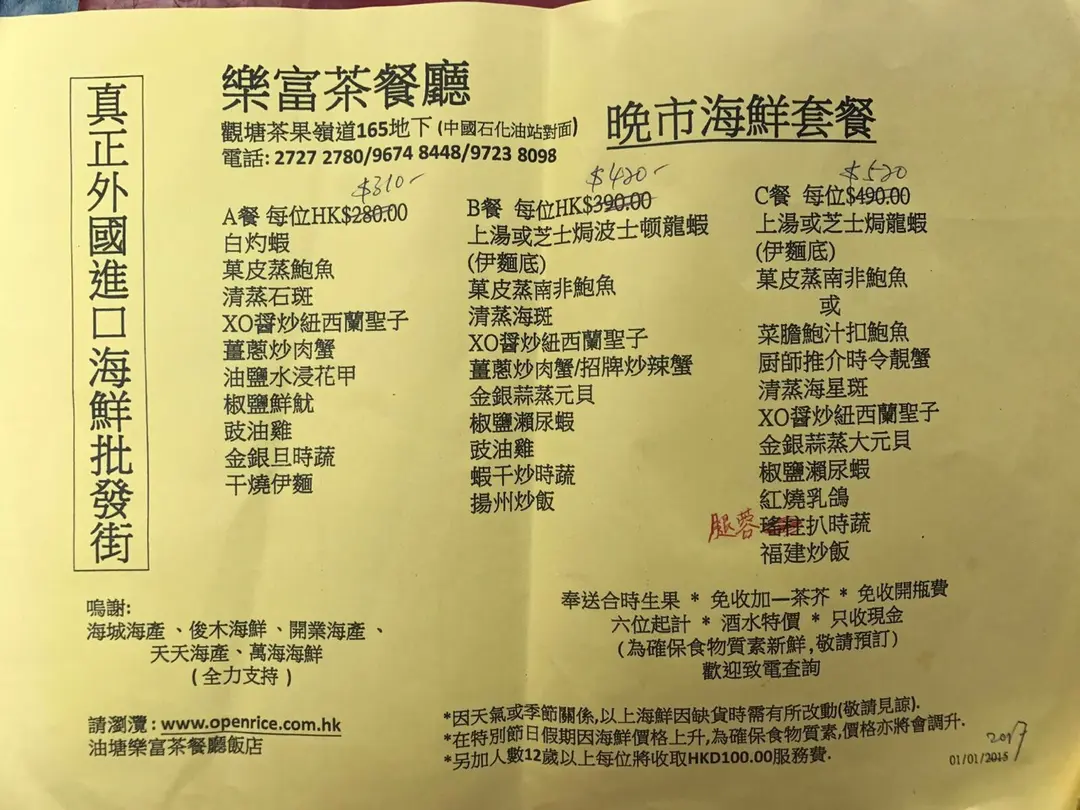 真正外國進口海鮮批發街
樂富茶餐廳
觀塘茶果嶺道165地下 (中國石化油站對面)
電話: 2727 2780/9674 8448/9723 8098
晚市海鮮套餐
$310-
A餐 每位HK$280.00
白灼蝦
菓皮蒸鮑魚
清蒸石斑
XO醬炒紐西蘭聖子
薑蔥炒肉蟹
油鹽水浸花甲
椒鹽鮮魷
豉油雞
金銀旦時蔬
干燒伊麵
$420-
B餐 每位HK$390.00
上湯或芝士焗波士頓龍蝦
(伊麵底)
菓皮蒸南非鮑魚
清蒸海斑
XO醬炒紐西蘭聖子
薑蔥炒肉蟹/招牌炒辣蟹
金銀蒜蒸元貝
椒鹽瀨尿蝦
豉油雞
蝦干炒時蔬
揚州炒飯
$520
C餐 每位$490.00
上湯或芝士焗龍蝦
(伊麵底)
菓皮蒸南非鮑魚
或
菜膽鮑汁扣鮑魚
厨師推介時令靚蟹
清蒸海星斑
XO醬炒紐西蘭聖子
金銀蒜蒸大元貝
椒鹽瀨尿蝦
紅燒乳鴿
腿蓉 瑤柱扒時蔬
福建炒飯
嗚謝:
海城海產、俊木海鮮、開業海產、
天天海產、萬海海鮮
(全力支持)
奉送合時生果 * 免收加一茶芥 * 免收開瓶費
六位起計 * 酒水特價 * 只收現金
(為確保食物質素新鮮,敬請預訂)
歡迎致電查詢
請瀏灠: www.openrice.com.hk
油塘樂富茶餐廳飯店
*因天氣或季節關係,以上海鮮因缺貨時需有所改動(敬請見諒).
*在特別節日假期因海鮮價格上升,為確保食物質素,價格亦將會調升.
*另加人數12歲以上每位將收取HKD100.00服務費.
2017
01/01/2015